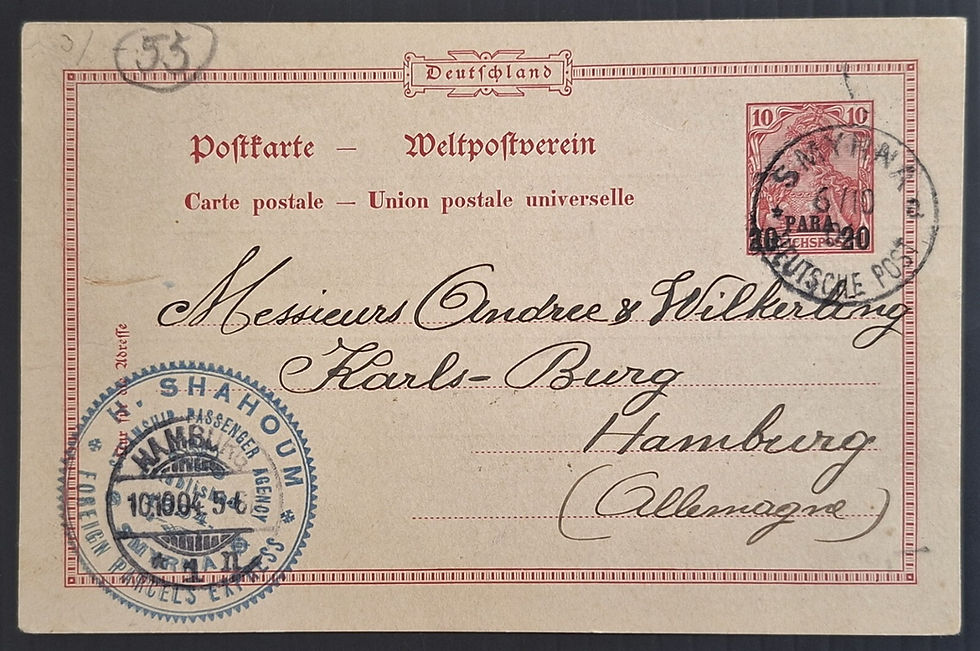 55
Deutschland
Postkarte — Weltpostverein
Carte postale — Union postale universelle
10 10
20 PARA 20
SMYRNA 2
6/10
DEUTSCHE POST
Messieurs Andree & Wilkerling
Karls-Burg
Hamburg
(Allemagne)
Adresse
H. SHAHOUM
PASSENGER AGENCY
FOREIGN PARCELS EXPRESS
SMYRNA
HAMBURG
10.10.04. 5-6
* 1